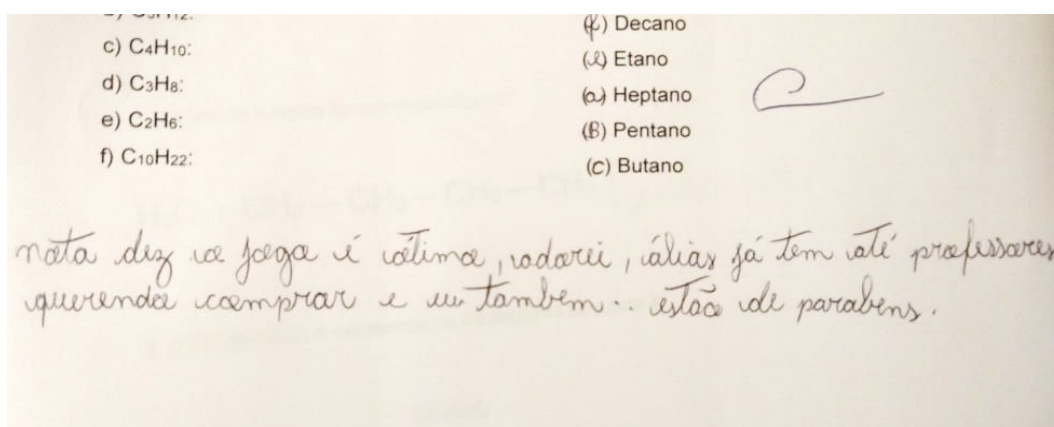 c) C₄H₁₀:
d) C₃H₈:
e) C₂H₆:
f) C₁₀H₂₂:
(f) Decano
(e) Etano
(a) Heptano
(B) Pentano
(C) Butano
nota dez o jogo é otimo, adorei, álias já tem até professores
querendo comprar e eu também.. estão de parabens.